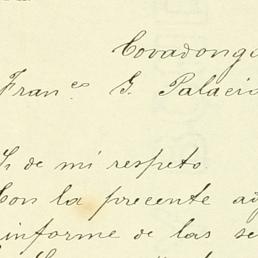 Covadonga
Fran.co G. Palacio
Sr de mi respeto.
Con la precente
informe de las se